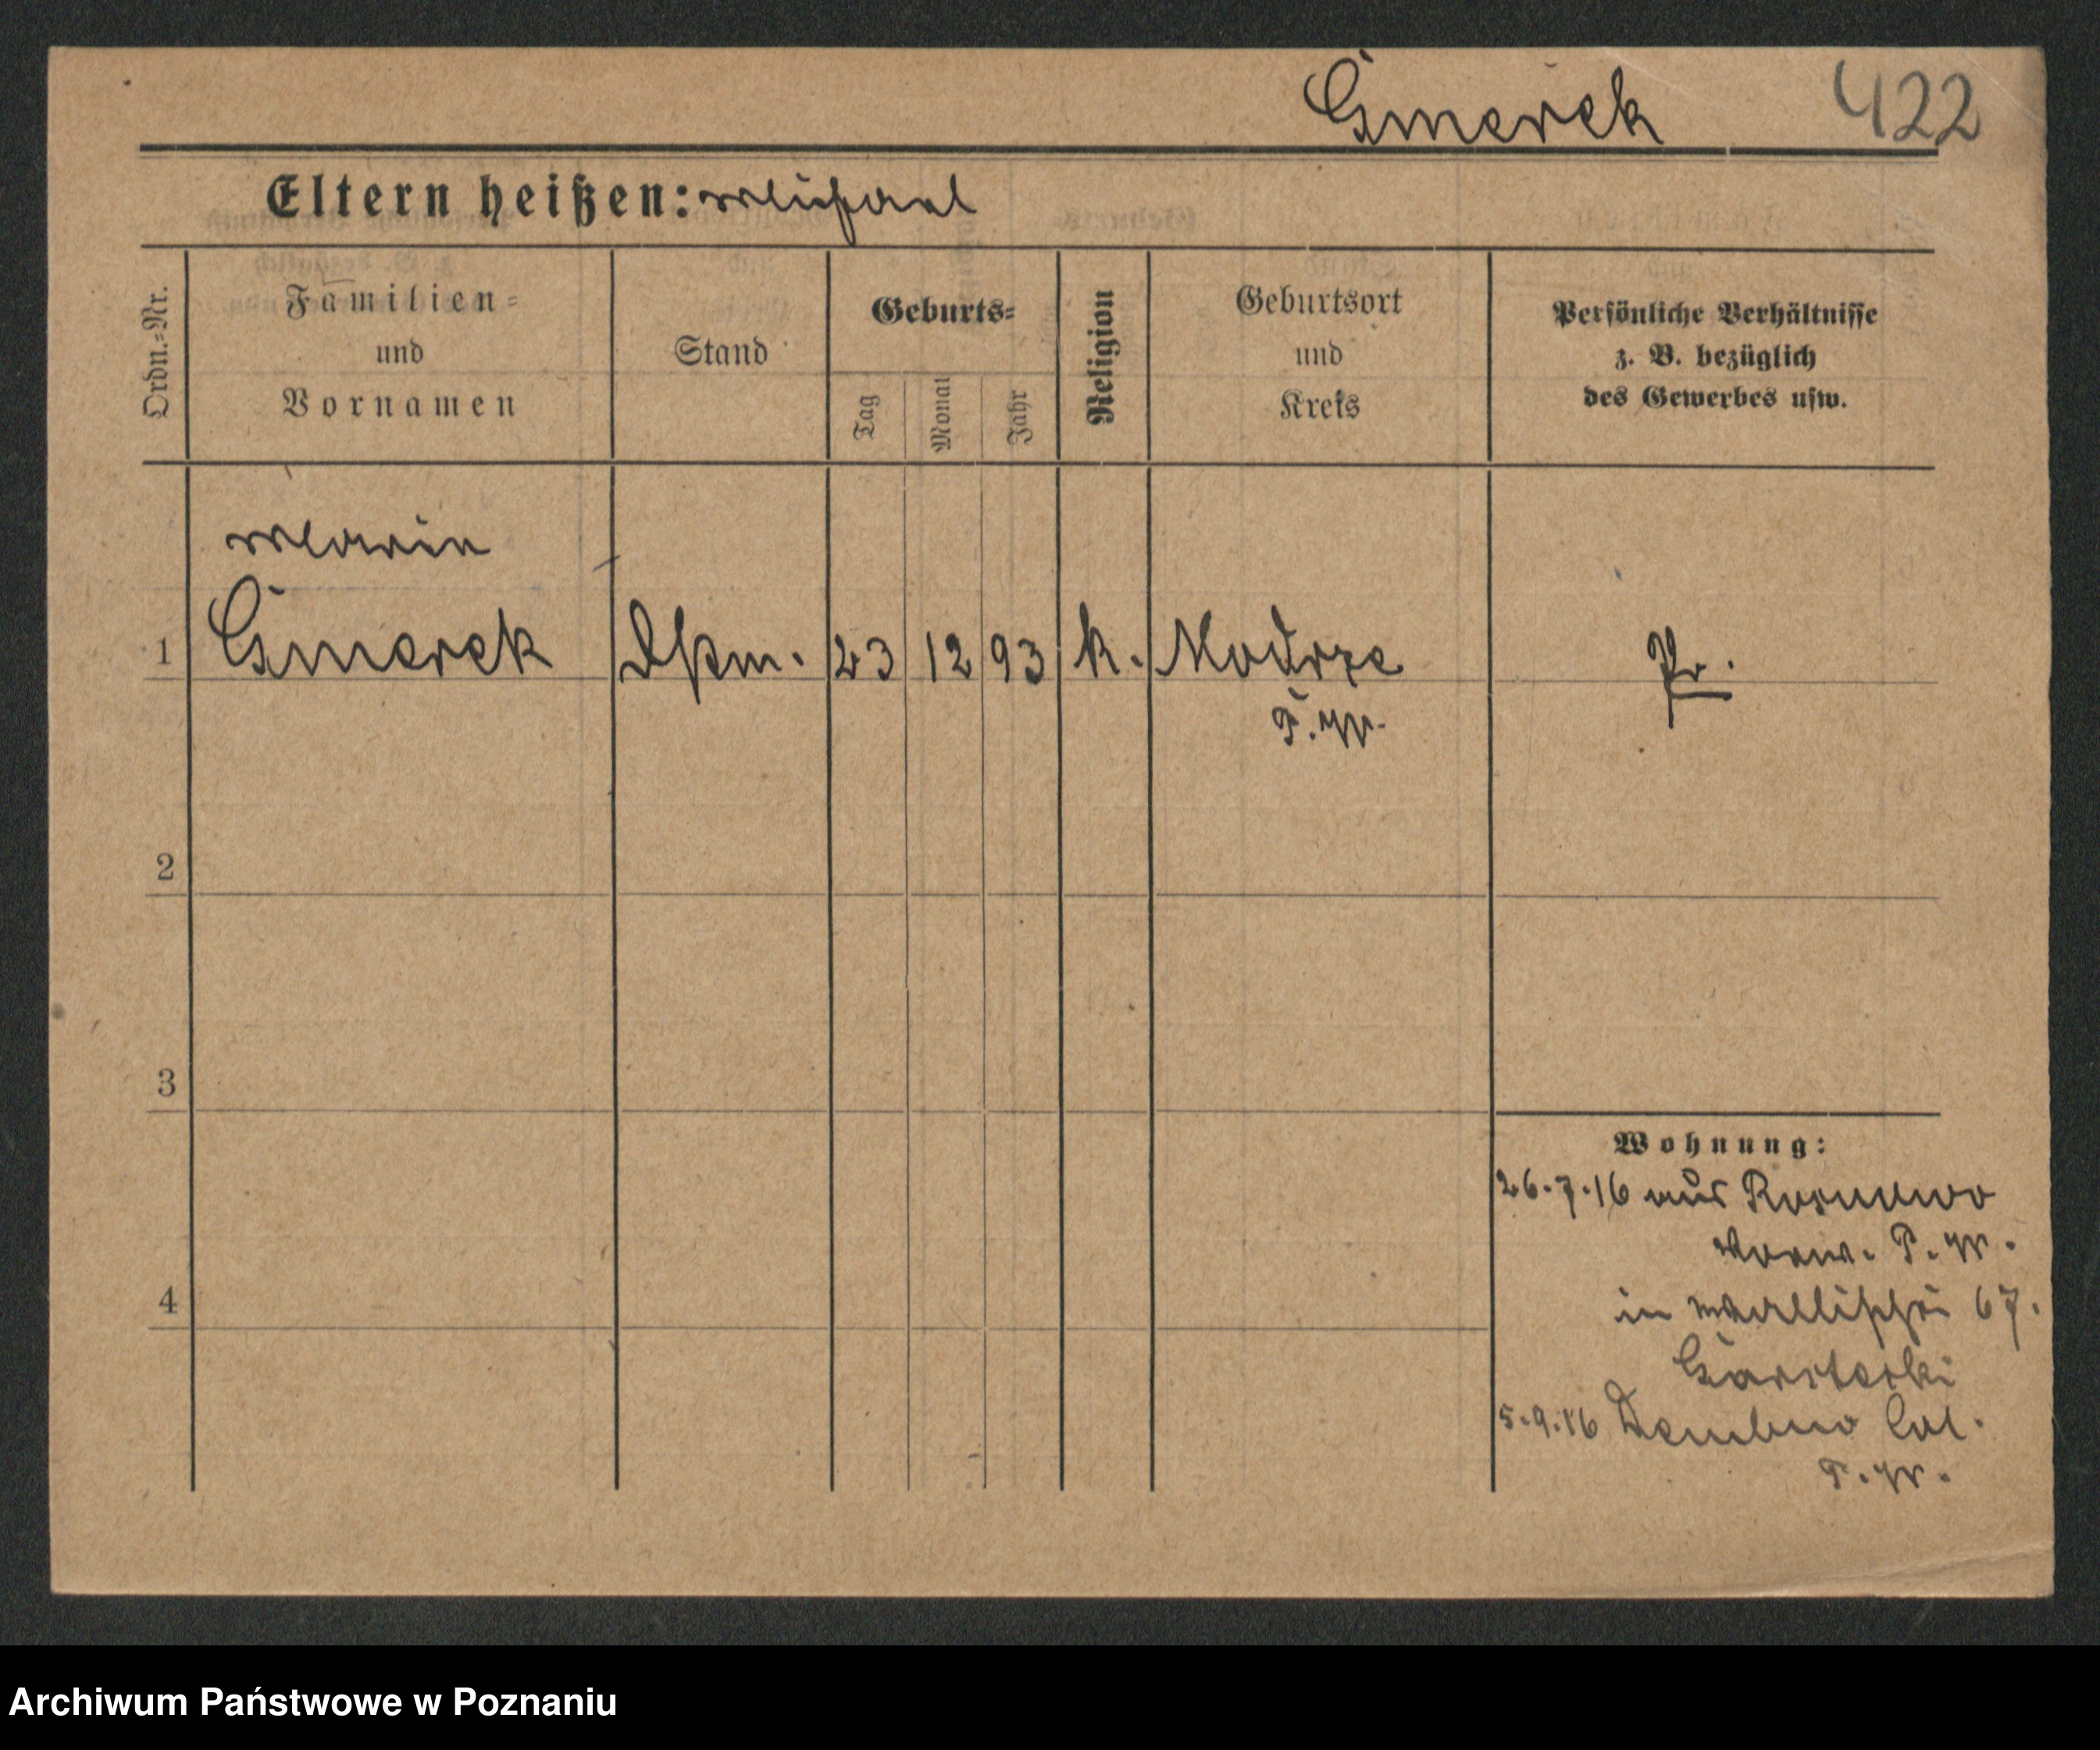 Gmerek 422
Eltern heißen: Michael
Ordn.-Nr.
Familien-
und
Vornamen
Stand
Geburts-
Tag
Monat
Jahr
Religion
Geburtsort
und
Kreis
Persönliche Verhältnisse
z. B. bezüglich
des Gewerbes usw.
Marie
1 Gmerek Dstm. 23 12 93 k. Modrze Pr.
P. W.
2
3
4
Wohnung:
26.7.16 aus Rosnowo
Vorw. P. W.
in Wallischei 67.
5.9.16 Dembno Col.
P. W.
Archiwum Państwowe w Poznaniu